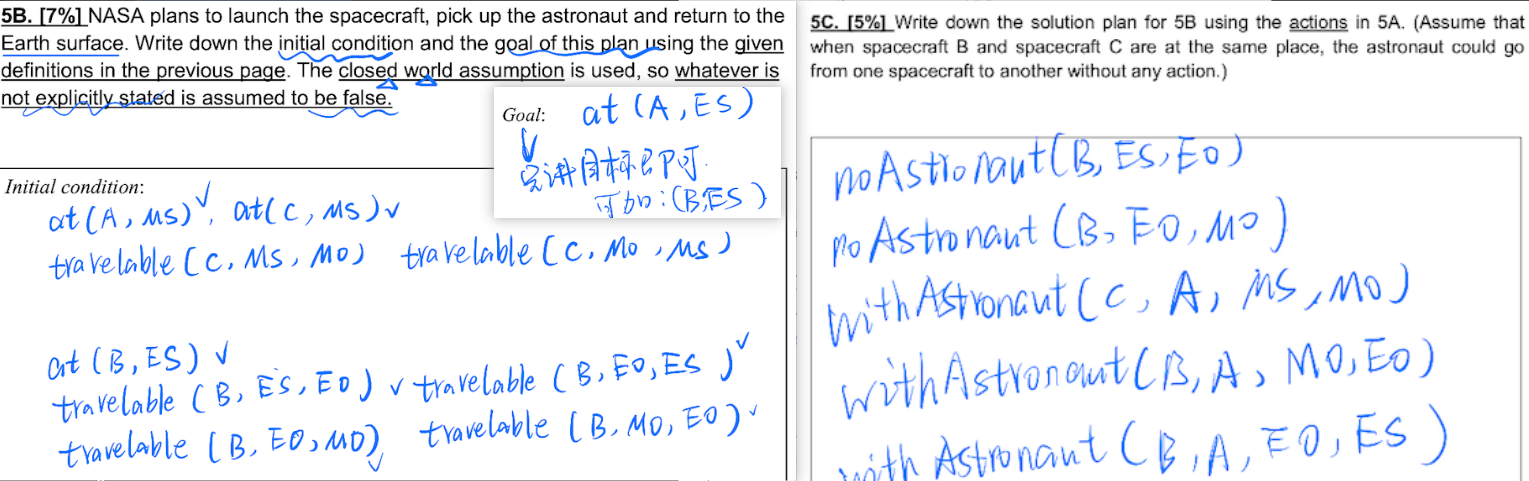 5B. [7%] NASA plans to launch the spacecraft, pick up the astronaut and return to the
Earth surface. Write down the initial condition and the goal of this plan using the given
definitions in the previous page. The closed world assumption is used, so whatever is
not explicitly stated is assumed to be false.
Goal: at (A, ES)
只讲目标即可.
可加: (B,ES)
Initial condition:
at (A, MS), at (C, MS)
travelable (C, MS, MO) travelable (C, MO, MS)
at (B, ES)
travelable (B, ES, EO) travelable (B, EO, ES)
travelable (B, EO, MO), travelable (B, MO, EO)
5C. [5%] Write down the solution plan for 5B using the actions in 5A. (Assume that
when spacecraft B and spacecraft C are at the same place, the astronaut could go
from one spacecraft to another without any action.)
noAstronaut(B, ES, EO)
noAstronaut (B, EO, MO)
withAstronaut (C, A, MS, MO)
withAstronaut (B, A, MO, EO)
with Astronaut (B, A, EO, ES)